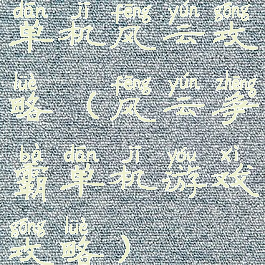 dān jī fēng yún gōng
单机风云攻
lüè fēng yún zhēng
略（风云争
bà dān jī yóu xì
霸单机游戏
gōng lüè
攻略）